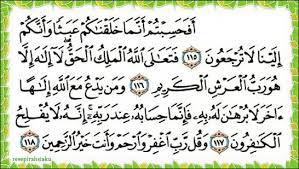 أَفَحَسِبْتُمْ أَنَّمَا خَلَقْنَاكُمْ عَبَثًا وَأَنَّكُمْ
إِلَيْنَا لَا تُرْجَعُونَ ١١٥ فَتَعَالَى اللَّهُ الْمَلِكُ الْحَقُّ لَا إِلَٰهَ إِلَّا
هُوَ رَبُّ الْعَرْشِ الْكَرِيمِ ١١٦ وَمَن يَدْعُ مَعَ اللَّهِ إِلَٰهًا
ءَاخَرَ لَا بُرْهَانَ لَهُ بِهِ فَإِنَّمَا حِسَابُهُ عِندَ رَبِّهِ إِنَّهُ لَا يُفْلِحُ
الْكَافِرُونَ ١١٧ وَقُل رَّبِّ اغْفِرْ وَارْحَمْ وَأَنتَ خَيْرُ الرَّاحِمِينَ ١١٨
resepirahsiaku